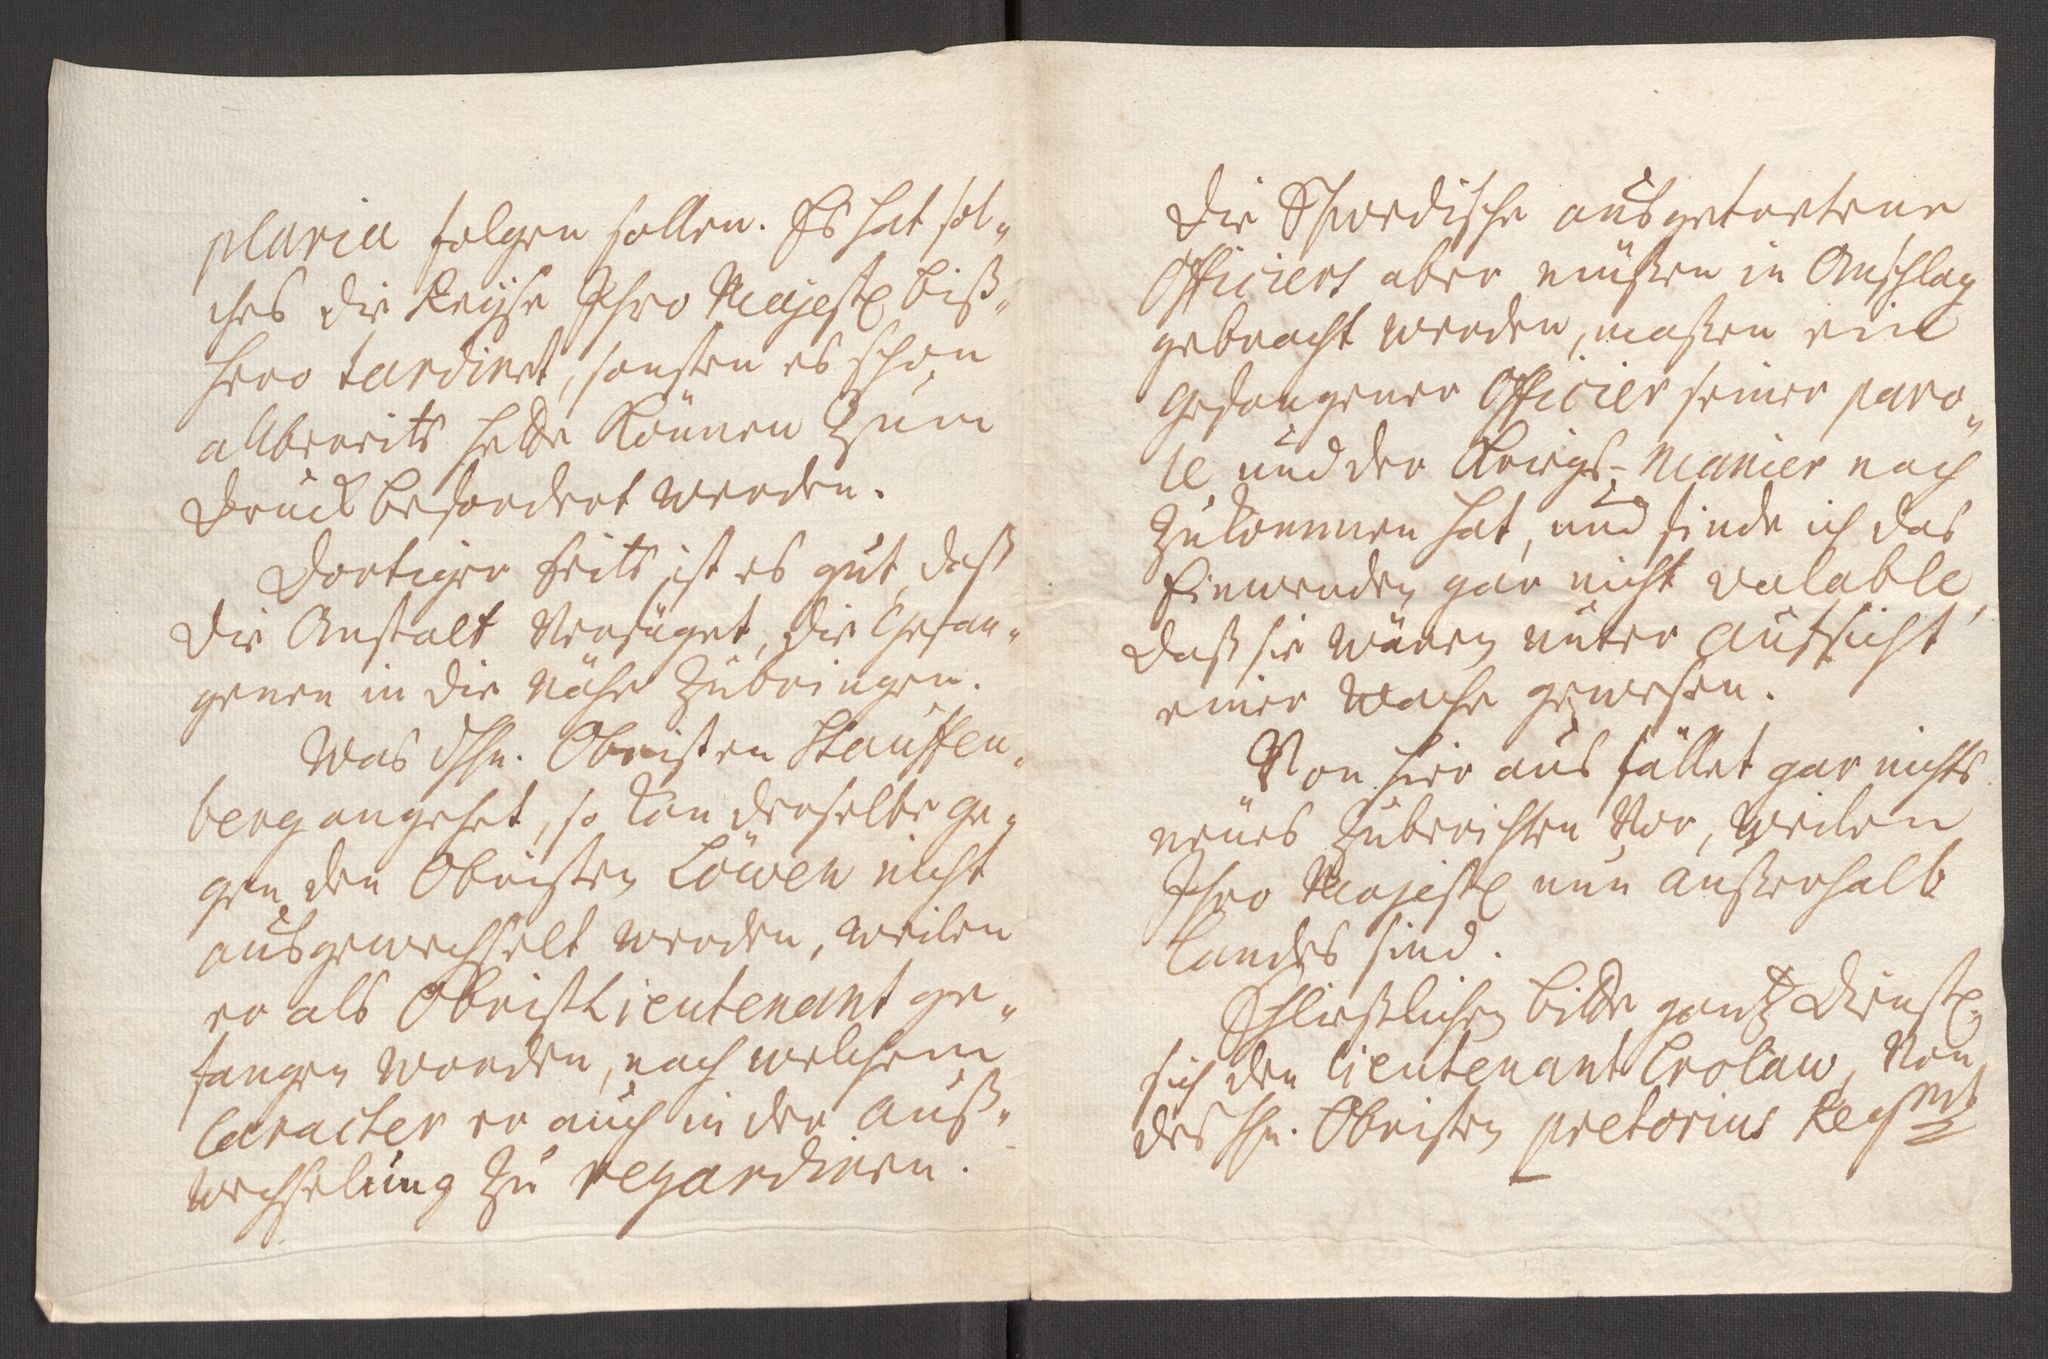 plaria folgen sollen. Es hat sol-
ches die Reyse Ihro Majest. biß-
hero tardiret, sonsten es schon
allbereits hette können zum
Druck befordert werden.
Dortiger seits ist es gut, daß
die Anstalt verfüget, die Gefan-
genen in die nähe zubringen.
Was Hn. Obristen Stauffen-
berg angehet, so kan derselbe ge-
gen den Obristen Löwen nicht
ausgewechselt werden, weilen
er als ObristLieutenant ge-
fangen worden, nach welchem
Caracter er auch in der Auß-
wechselung zu regardiren.
Die Schwedische ausgetretene
Officiers aber müßen in Anschlag
gebracht werden, maßen ein
gefangener Officier seiner paro-
le und der Kriegs-Manier nach
zukommen hat, und finde ich das
Einwenden gar nicht valable,
daß sie wären unter Aufsicht
einer Wache gewesen.
Von hier aus fället gar nichts
neües zuberichten vor, weilen
Ihro Majest. nun außerhalb
Landes sind.
Schließlichen bitte gantz dienstl.
sich den Lieutenant Crolaw, von
des Hn. Obristen pretorius Regmt